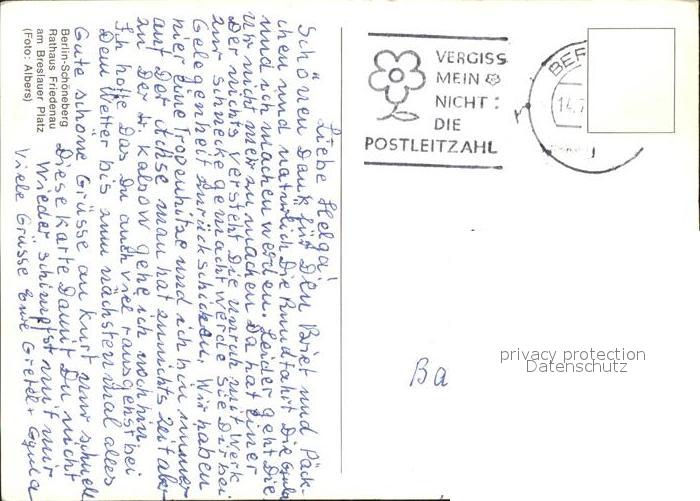 Liebe Helga!
Schönen Dank für Den Brief und Päck-
chen und natürlich Die Rundfahrt Die Gyula
und ich machen werden. Leider geht Die
Uhr nicht mehr zu machen Da hat einer
Der nichts versteht Die Unruh mit Werk
zur Schnecke gemacht werde sie Dir bei
Gelegenheit zurück schicken, Wir haben
hier eine Tropenhitze und ich bin immer
auf Der Achse man hat zu nichts Zeit aber
zu Der H. Kalsow gehe ich noch hin
Ich hoffe Das Du auch viel rausgehst bei
Dem Wetter bis zum nächsten mal alles
Gute schöne Grüsse an Kurt nur schnell
Diese Karte Damit Du nicht
Wieder schimpfst mit mir
Viele Grüsse Eure Gretel + Gyula
Berlin-Schöneberg
Rathaus Friedenau
am Breslauer Platz
(Foto: Albers)
VERGISS
MEIN
NICHT:
DIE
POSTLEITZAHL
BER
14.7
privacy protection
Datenschutz
Ba